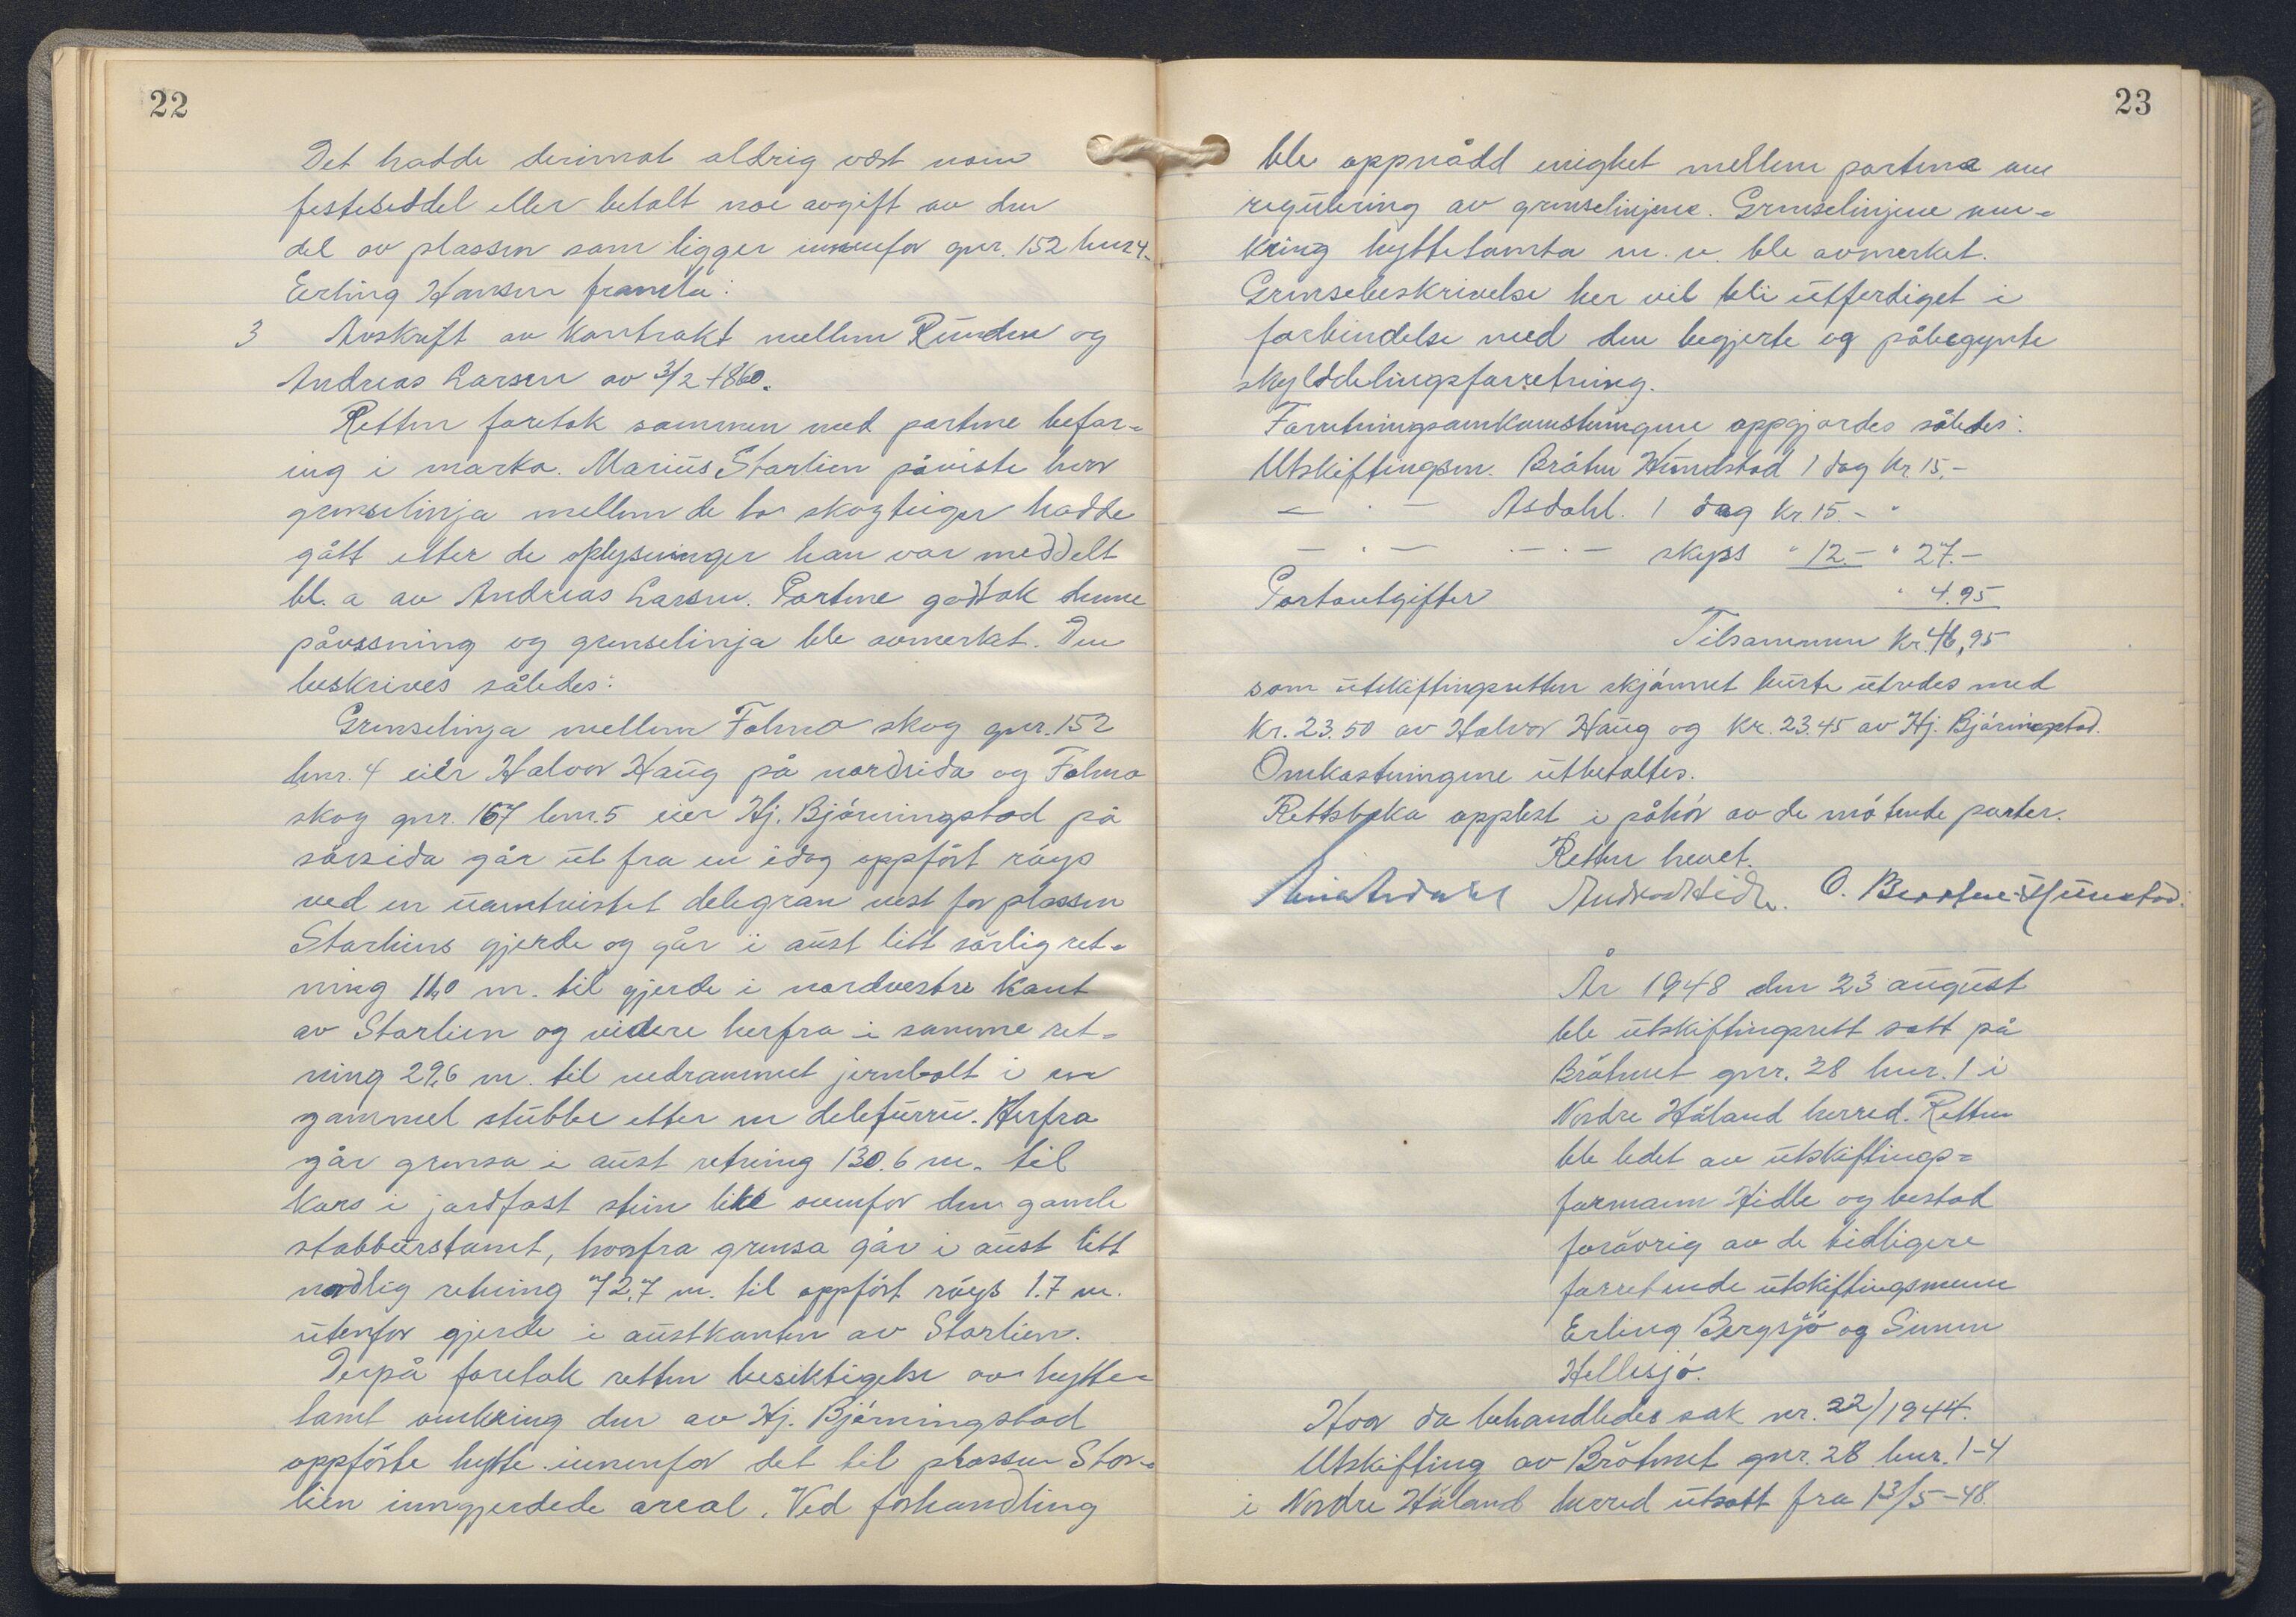 22
Det hadde derimot aldrig vært noen
festeseddel eller betalt noe avgift av den
del av plassen som ligger innenfor gnr. 152 bnr 4.
Erling Hansen framla:
3 Avskrift av kontrakt mellem Runden og
Andreas Larsen av 3/2 1860.
Retten foretok sammen med partene befar=
ing i marka. Marius Starlien påviste hvor
grenselinja mellem de to skogteiger hadde
gått etter de oplysninger han var meddelt
bl. a av Andreas Larsen. Partene godtok denne
påvisning og grenselinja ble avmerket. Den
beskrives således:
Grenselinja mellem Folmo skog gnr. 152
bnr. 4 eier Halvor Haug på nordsida og Folmo
skog gnr. 167 bnr. 5 eier Hj. Bjórningstad på
sórsida går ut fra en idag oppfórt róys
ved en uomtvistet delegran vest for plassen
Starliens gjerde og går i aust litt sórlig ret=
ning 11,0 m. til gjerde i nordvestre kant
av Starlien og videre herfra i samme ret=
ning 29,6 m. til nedrammet jernbolt i en
gammel stubbe etter en delefurru. Herfra
går grensa i aust retning 130.6 m. til
kors i jordfast stein like ovenfor den gamle
stabburstomt, hvorfra grensa går i aust litt
nordlig retning 72,7 m. til oppfórt róys 1.7 m.
utenfor gjerde i austkanten av Starlien.
Derpå foretok retten besiktigelse av hytte=
tomt omkring den av Hj. Bjórningstad
oppfórte hytte innenfor det til plassen Star=
lien inngjerdede areal. Ved forhandling
23
ble oppnådd enighet mellem partene om
regulering av grenselinjene. Grenselinjene om=
kring hyttetomta m. v. ble avmerket.
Grensebeskrivelse her vil bli utferdiget i
forbindelse med den begjerte og påbegynte
skylddelingsforretning.
Forretningsomkostningene oppgjordes således:
Utskiftingsm. Bråten Hunstad 1 dag kr. 15.-
— . — Asdahl. 1 dag kr. 15.- "
— . — — . — skyss " 12.- " 27.-
Portoutgifter " 4.95
Tilsammen kr. 46,95
som utskiftingsretten skjónnet burte utredes med
kr. 23.50 av Halvor Haug og kr. 23.45 av Hj. Bjórningstad.
Omkostningene utbetaltes.
Rettsboka opplest i påhór av de mótende parter.
Retten hevet.
Andr. Hidle. O.
År 1948 den 23 august
ble utskiftingsrett satt på
Bråtnet gnr. 28 bnr. 1 i
Nordre Hóland herred. Retten
ble ledet av utskiftings=
formann Hidle og bestod
foróvrig av de tidligere
forretende utskiftingsmenn
Erling Bergsjó og Simen
Hellesjó.
Hvor da behandledes sak nr. 22/1944.
Utskifting av Bråtnet gnr. 28 bnr. 1-4
i Nordre Hóland herred utsatt fra 13/5-48.